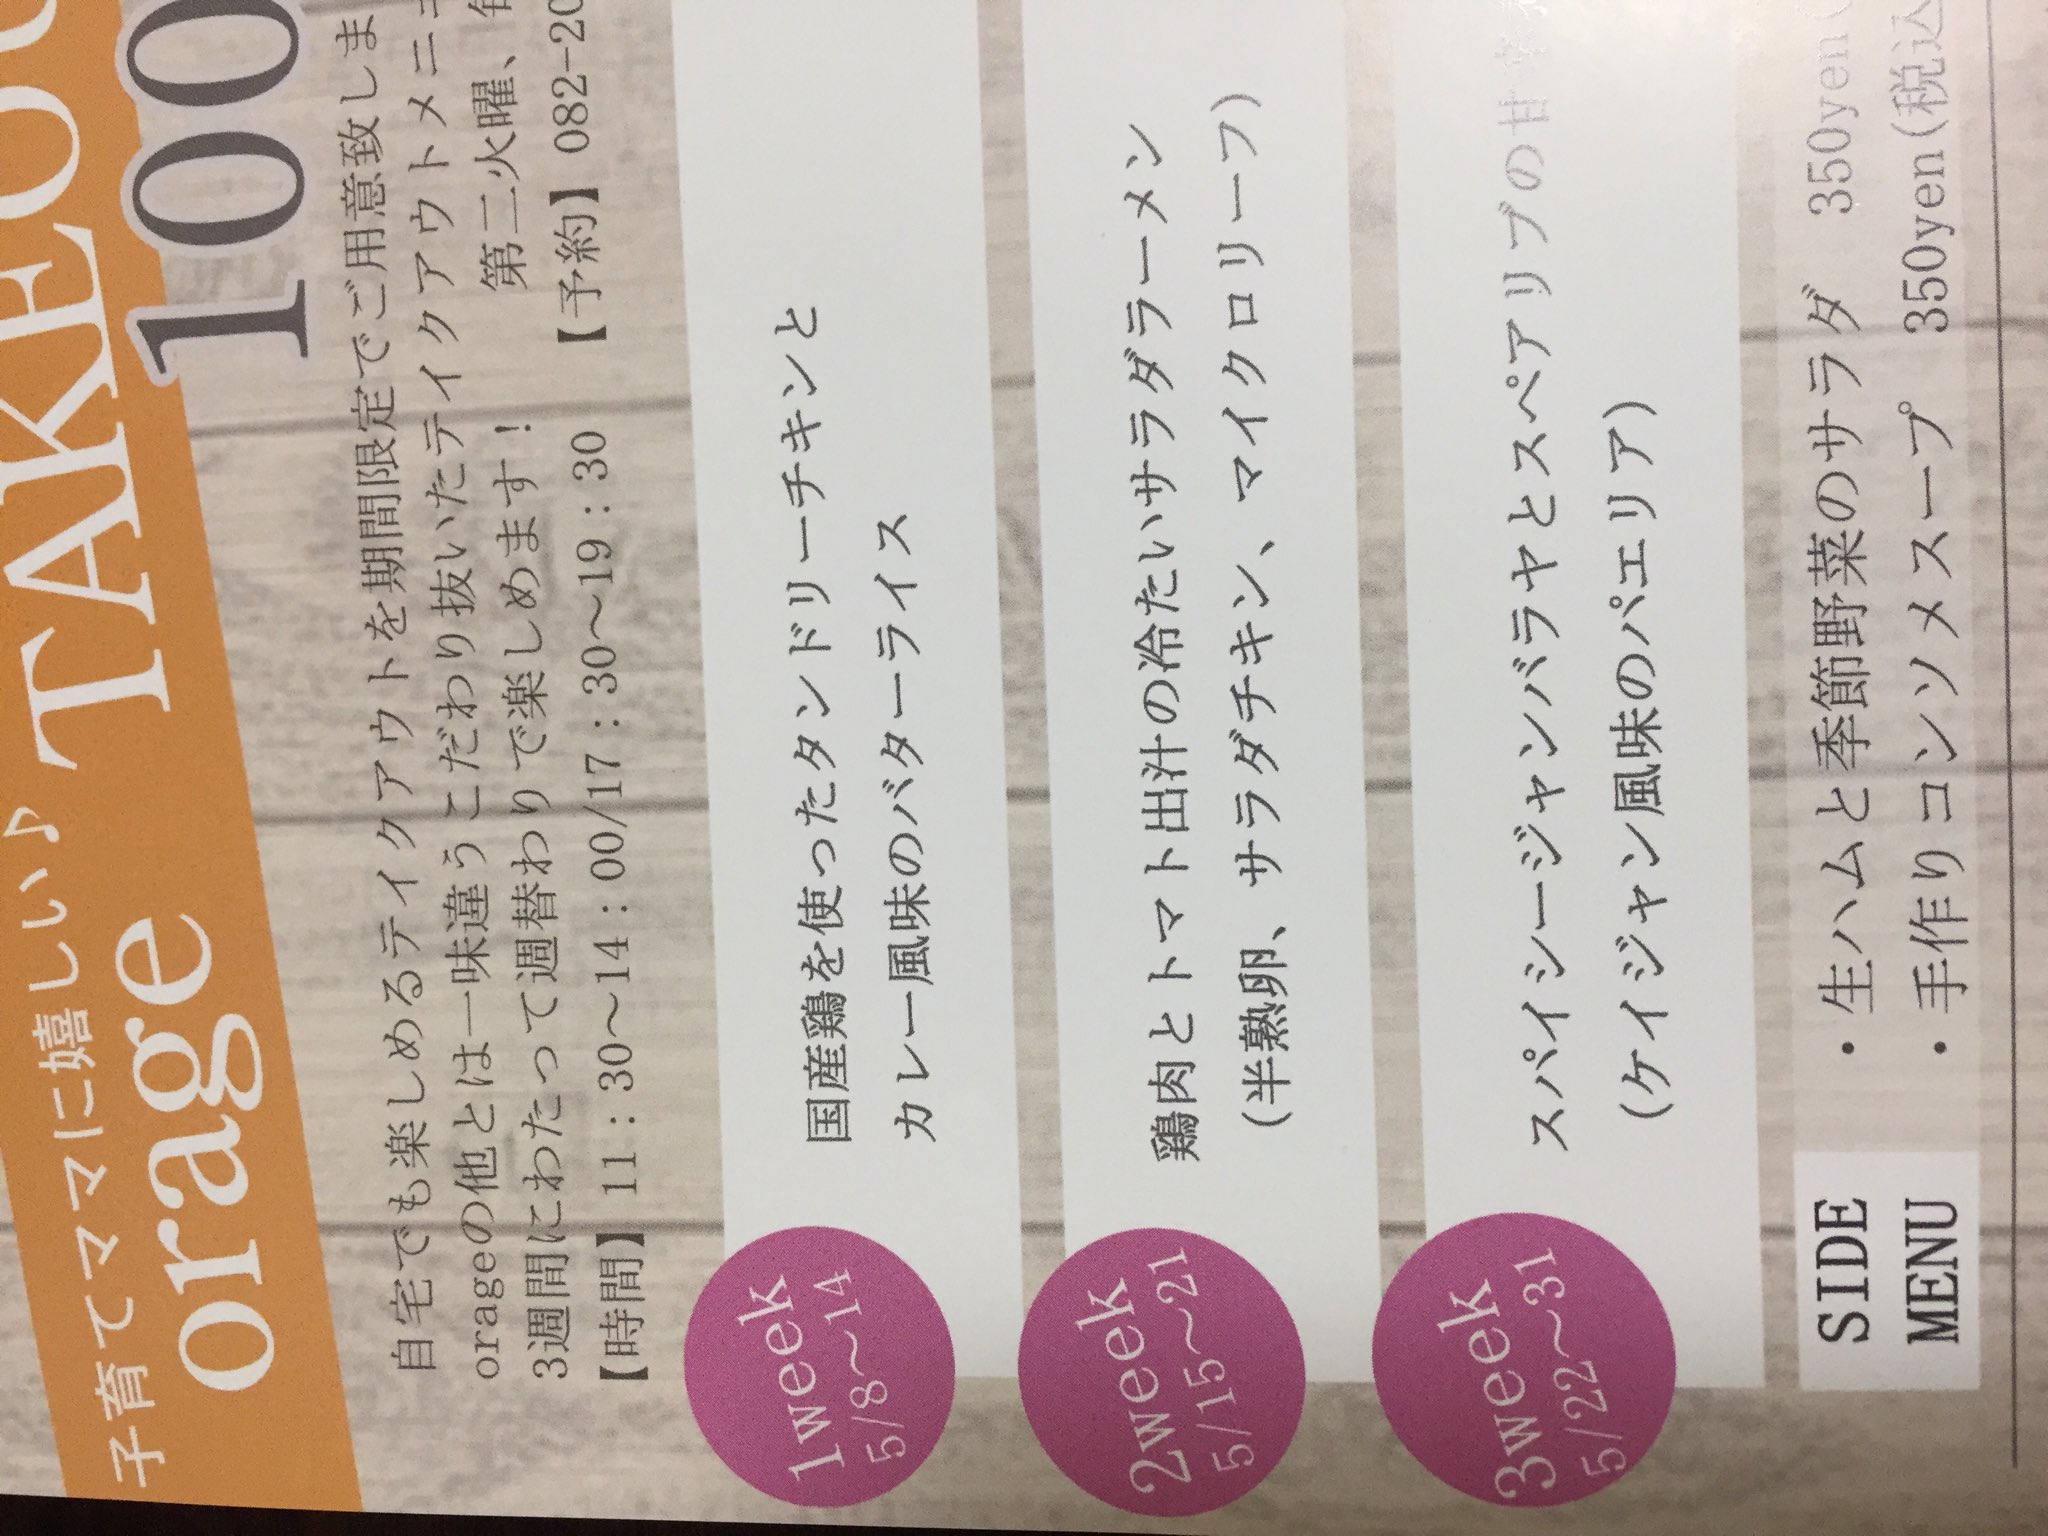 子育てママに嬉しい♪ TAKEO
orage
100
自宅でも楽しめるテイクアウトを期間限定でご用意致しま
orageの他とは一味違うこだわり抜いたテイクアウトメニ
3週間にわたって週替わりで楽しめます！
第二火曜、
【時間】11：30～14：00/17：30～19：30 【予約】082-20
1week
5/8～14
国産鶏を使ったタンドリーチキンと
カレー風味のバターライス
2week
5/15～21
鶏肉とトマト出汁の冷たいサラダラーメン
(半熟卵、サラダチキン、マイクロリーフ)
3week
5/22～31
スパイシージャンバラヤとスペアリブの甘辛
(ケイジャン風味のパエリア)
SIDE
MENU
・生ハムと季節野菜のサラダ 350yen(
・手作りコンソメスープ 350yen(税込